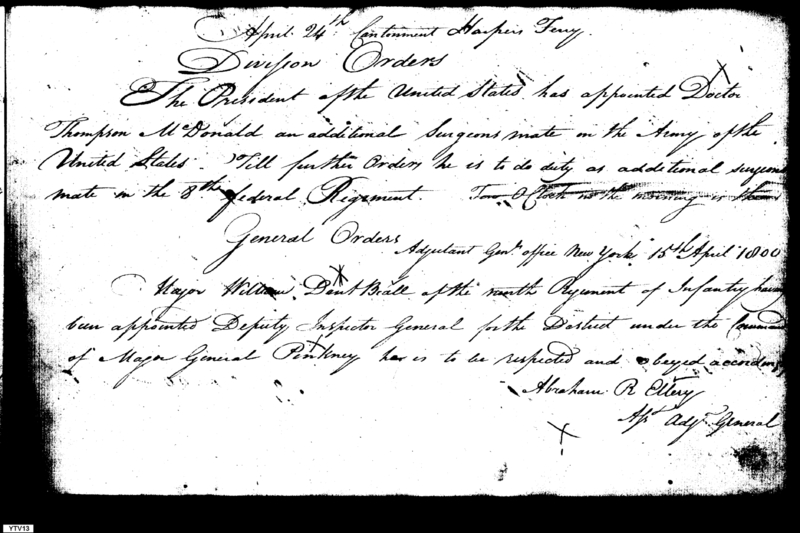 April 24th Cantonment Harpers Ferry
Division Orders
The President of the United States has appointed Doctor
Thompson McDonald an additional Surgeons mate in the Army of the
United States. Till further Orders he is to do duty as additional surgeons
mate in the 8th federal Regiment. Two O Clock in the morning is the
General Orders
Adjutant Genls office New York 15th April 1800
Major William Dent Beall of the ninth Regiment of Infantry having
been appointed Deputy Inspector General for the District under the Command
of Major General Pinkney he is to be respected and obeyed accordingly
Abraham R Ellery
Asst Adjt General
YTV13